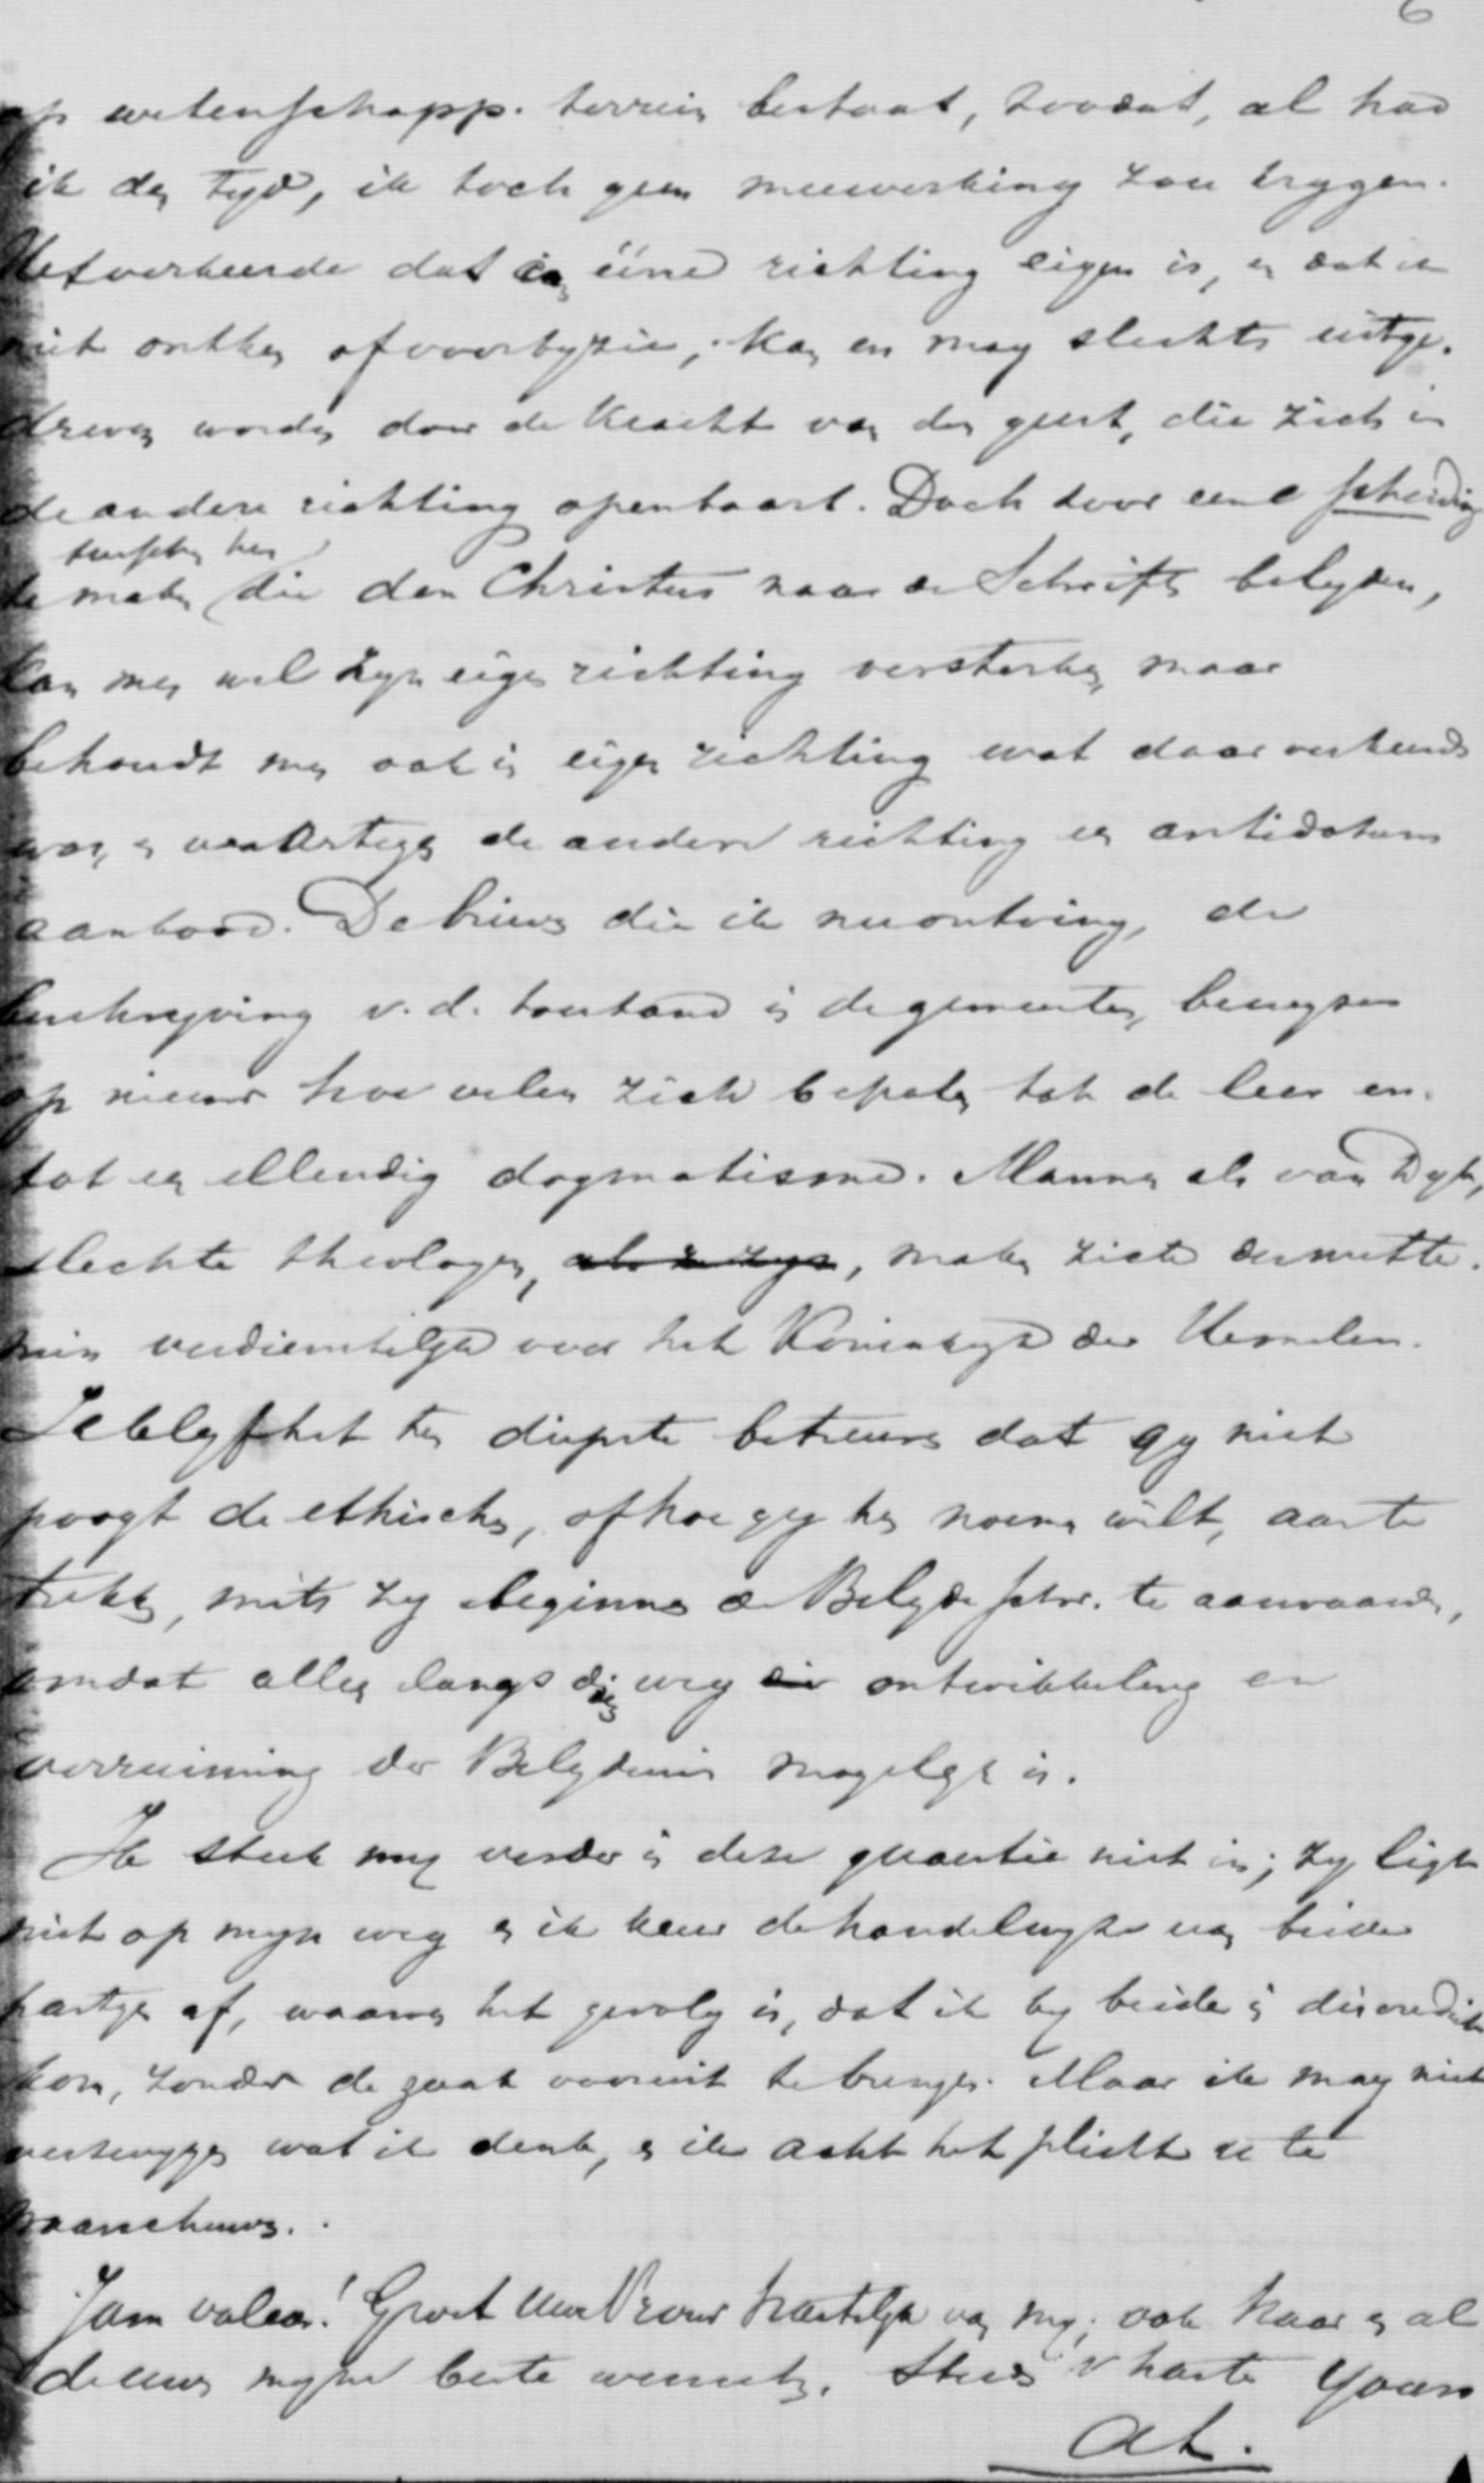 6
op wetenschapp. terrein bestaat, zoodat, al had
ik den tyd, ik toch geen meewerking zou krygen.
Het verkeerde dat in ééne richting eigen is, en dat ik
niet ontken of voorbyzie, kan en mag slechts uitge-
dreven worden door de kracht van den geest, die zich in
de andere richting openbaart. Doch door eene scheiding
tusschen hen
te maken die den Christus naar de Schriften belyden,
kan men wel zyn eigen richting versterken, maar
behoudt men ook in eigen richting wat daar verkeerds
was, en waartegen de andere richting een antidotum
aanbood. De brieven die ik nu ontving, de
beschryving v. d. toestand in de gemeenten, bewyzen
op nieuw hoe velen zich bepalen tot de leer en
tot een ellendig dogmatisme. Mannen als van Dyk,
slechte theologen, als ze zyn, maken zich desniette-
min verdienstelyk voor het Koninkryk der Hemelen.
Ik blyf het ten diepste betreuren dat gy niet
poogt de ethischen, of hoe gy hen noemen wilt, aan te
trekken, mits zy beginnen de Belydeschr. te aanvaarden,
omdat alleen langs dien weg ontwikkeling en
verruiming der Belydenis mogelyk is.
Ik steek my verder in deze quaestie niet in; zy ligt
niet op myn weg en ik keur de handelwyze van beide
partyen af, waarvan het gevolg is, dat ik by beide in discrediet
kom, zonder de zaak vooruit te brengen. Maar ik mag niet
verzwygen wat ik denk, en ik acht het plicht u te
waarschuwen.
Jam valeas! Groet uwe Vrouw hartelyk van my; ook haar en al
de uwen myne beste wenschen. Steeds v harte Yours
AL.